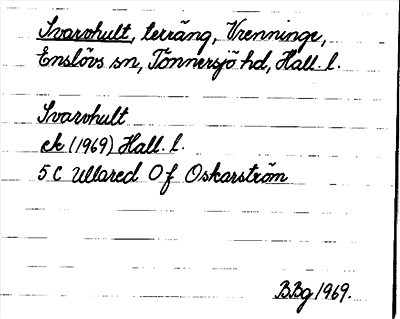 Svarvhult, terräng, Vrenninge,
Enslövs sn, Tönnersjö hd, Hall. l.
Svarvhult
ek (1969) Hall. l.
5 C Ullared O f Oskarström
B.Bg 1969.